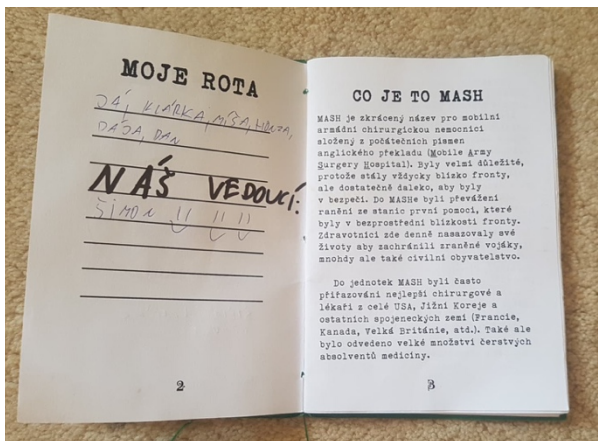 MOJE ROTA
JÁ, KLÁRKA, MÍŠA, HONZA,
DÁJA, DAN
NÁŠ VEDOUCÍ:
ŠIMON
2
CO JE TO MASH
MASH je zkrácený název pro mobilní
armádní chirurgickou nemocnici
složený z počátečních písmen
anglického překladu (Mobile Army
Surgery Hospital). Byly velmi důležité,
protože stály vždycky blízko fronty,
ale dostatečně daleko, aby byly
v bezpečí. Do MASHe byli převáženi
ranění ze stanic první pomoci, které
byly v bezprostřední blízkosti fronty.
Zdravotníci zde denně nasazovaly své
životy aby zachránili zraněné vojáky,
mnohdy ale také civilní obyvatelstvo.
Do jednotek MASH byli často
přiřazováni nejlepší chirurgové a
lékaři z celé USA, Jižní Koreje a
ostatních spojeneckých zemí (Francie,
Kanada, Velká Británie, atd.). Také ale
bylo odvedeno velké množství čerstvých
absolventů medicíny.
3